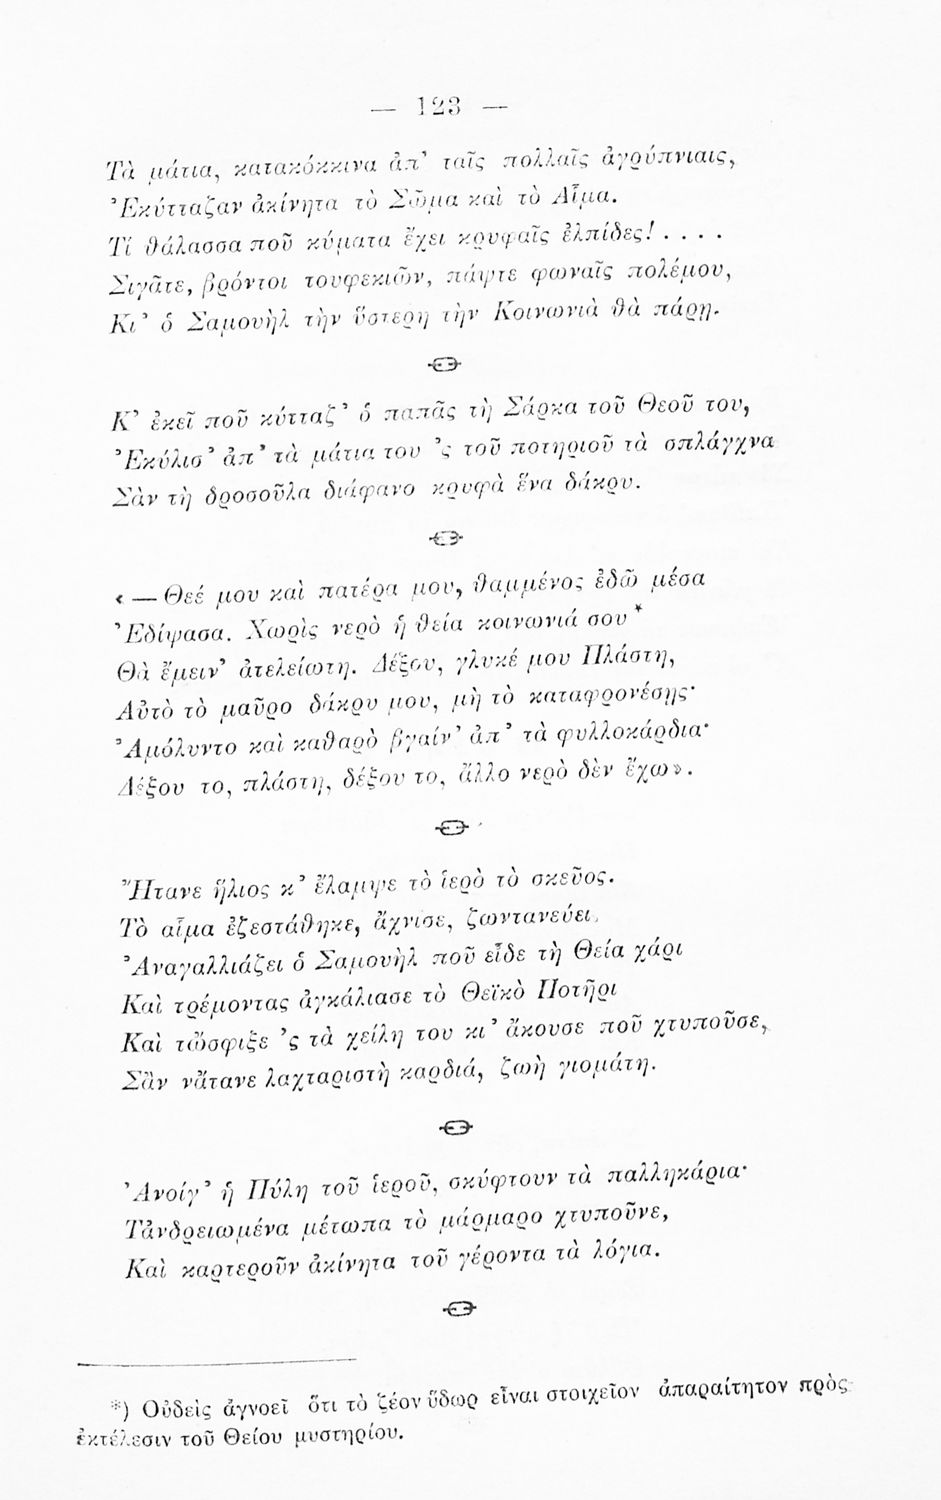 — 123 —
Τὰ μάτια, κατακόκκινα ἀπ’ ταῖς πολλαῖς ἀγρύπνιαις,
Ἐκύτταζαν ἀκίνητα τὸ Σῶμα καὶ τὸ Αἷμα.
Τί θάλασσα ποῦ κύματα ἔχει κρυφαῖς ἐλπίδες! . . . .
Σιγᾶτε, βρόντοι τουφεκιῶν, πάψτε φωναῖς πολέμου,
Κι’ ὁ Σαμουὴλ τὴν ὕστερη τὴν Κοινωνιὰ θὰ πάρῃ.
Κ’ ἐκεῖ ποῦ κύτταζ’ ὁ παπᾶς τὴ Σάρκα τοῦ Θεοῦ του,
Ἐκύλισ’ ἀπ’ τὰ μάτια του ’ς τοῦ ποτηριοῦ τὰ σπλάγχνα
Σὰν τὴ δροσοῦλα διάφανο κρυφὰ ἕνα δάκρυ.
« — Θεέ μου καὶ πατέρα μου, θαμμένος ἐδῶ μέσα
Ἐδίψασα. Χωρὶς νερὸ ἡ θεία κοινωνιά σου *
Θὰ ἔμειν’ ἀτελείωτη. Δέξου, γλυκέ μου Πλάστη,
Αὐτὸ τὸ μαῦρο δάκρυ μου, μὴ τὸ καταφρονέσῃς·
Ἀμόλυντο καὶ καθαρὸ βγαίν’ ἀπ’ τὰ φυλλοκάρδια·
Δέξου το, πλάστη, δέξου το, ἄλλο νερὸ δὲν ἔχω».
Ἤτανε ἥλιος κ’ ἔλαμψε τὸ ἱερὸ τὸ σκεῦος.
Τὸ αἷμα ἐζεστάθηκε, ἄχνισε, ζωντανεύει,
Ἀναγαλλιάζει ὁ Σαμουὴλ ποῦ εἶδε τὴ Θεία χάρι
Καὶ τρέμοντας ἀγκάλιασε τὸ Θεϊκὸ Ποτῆρι
Καὶ τὤσφιξε ’ς τὰ χείλη του κι’ ἄκουσε ποῦ χτυποῦσε,
Σὰν νἄτανε λαχταριστὴ καρδιά, ζωὴ γιομάτη.
Ἀνοίγ’ ἡ Πύλη τοῦ ἱεροῦ, σκύφτουν τὰ παλληκάρια·
Τἀνδρειωμένα μέτωπα τὸ μάρμαρο χτυποῦνε,
Καὶ καρτεροῦν ἀκίνητα τοῦ γέροντα τὰ λόγια.
*) Οὐδεὶς ἀγνοεῖ ὅτι τὸ ζέον ὕδωρ εἶναι στοιχεῖον ἀπαραίτητον πρὸς
ἐκτέλεσιν τοῦ Θείου μυστηρίου.